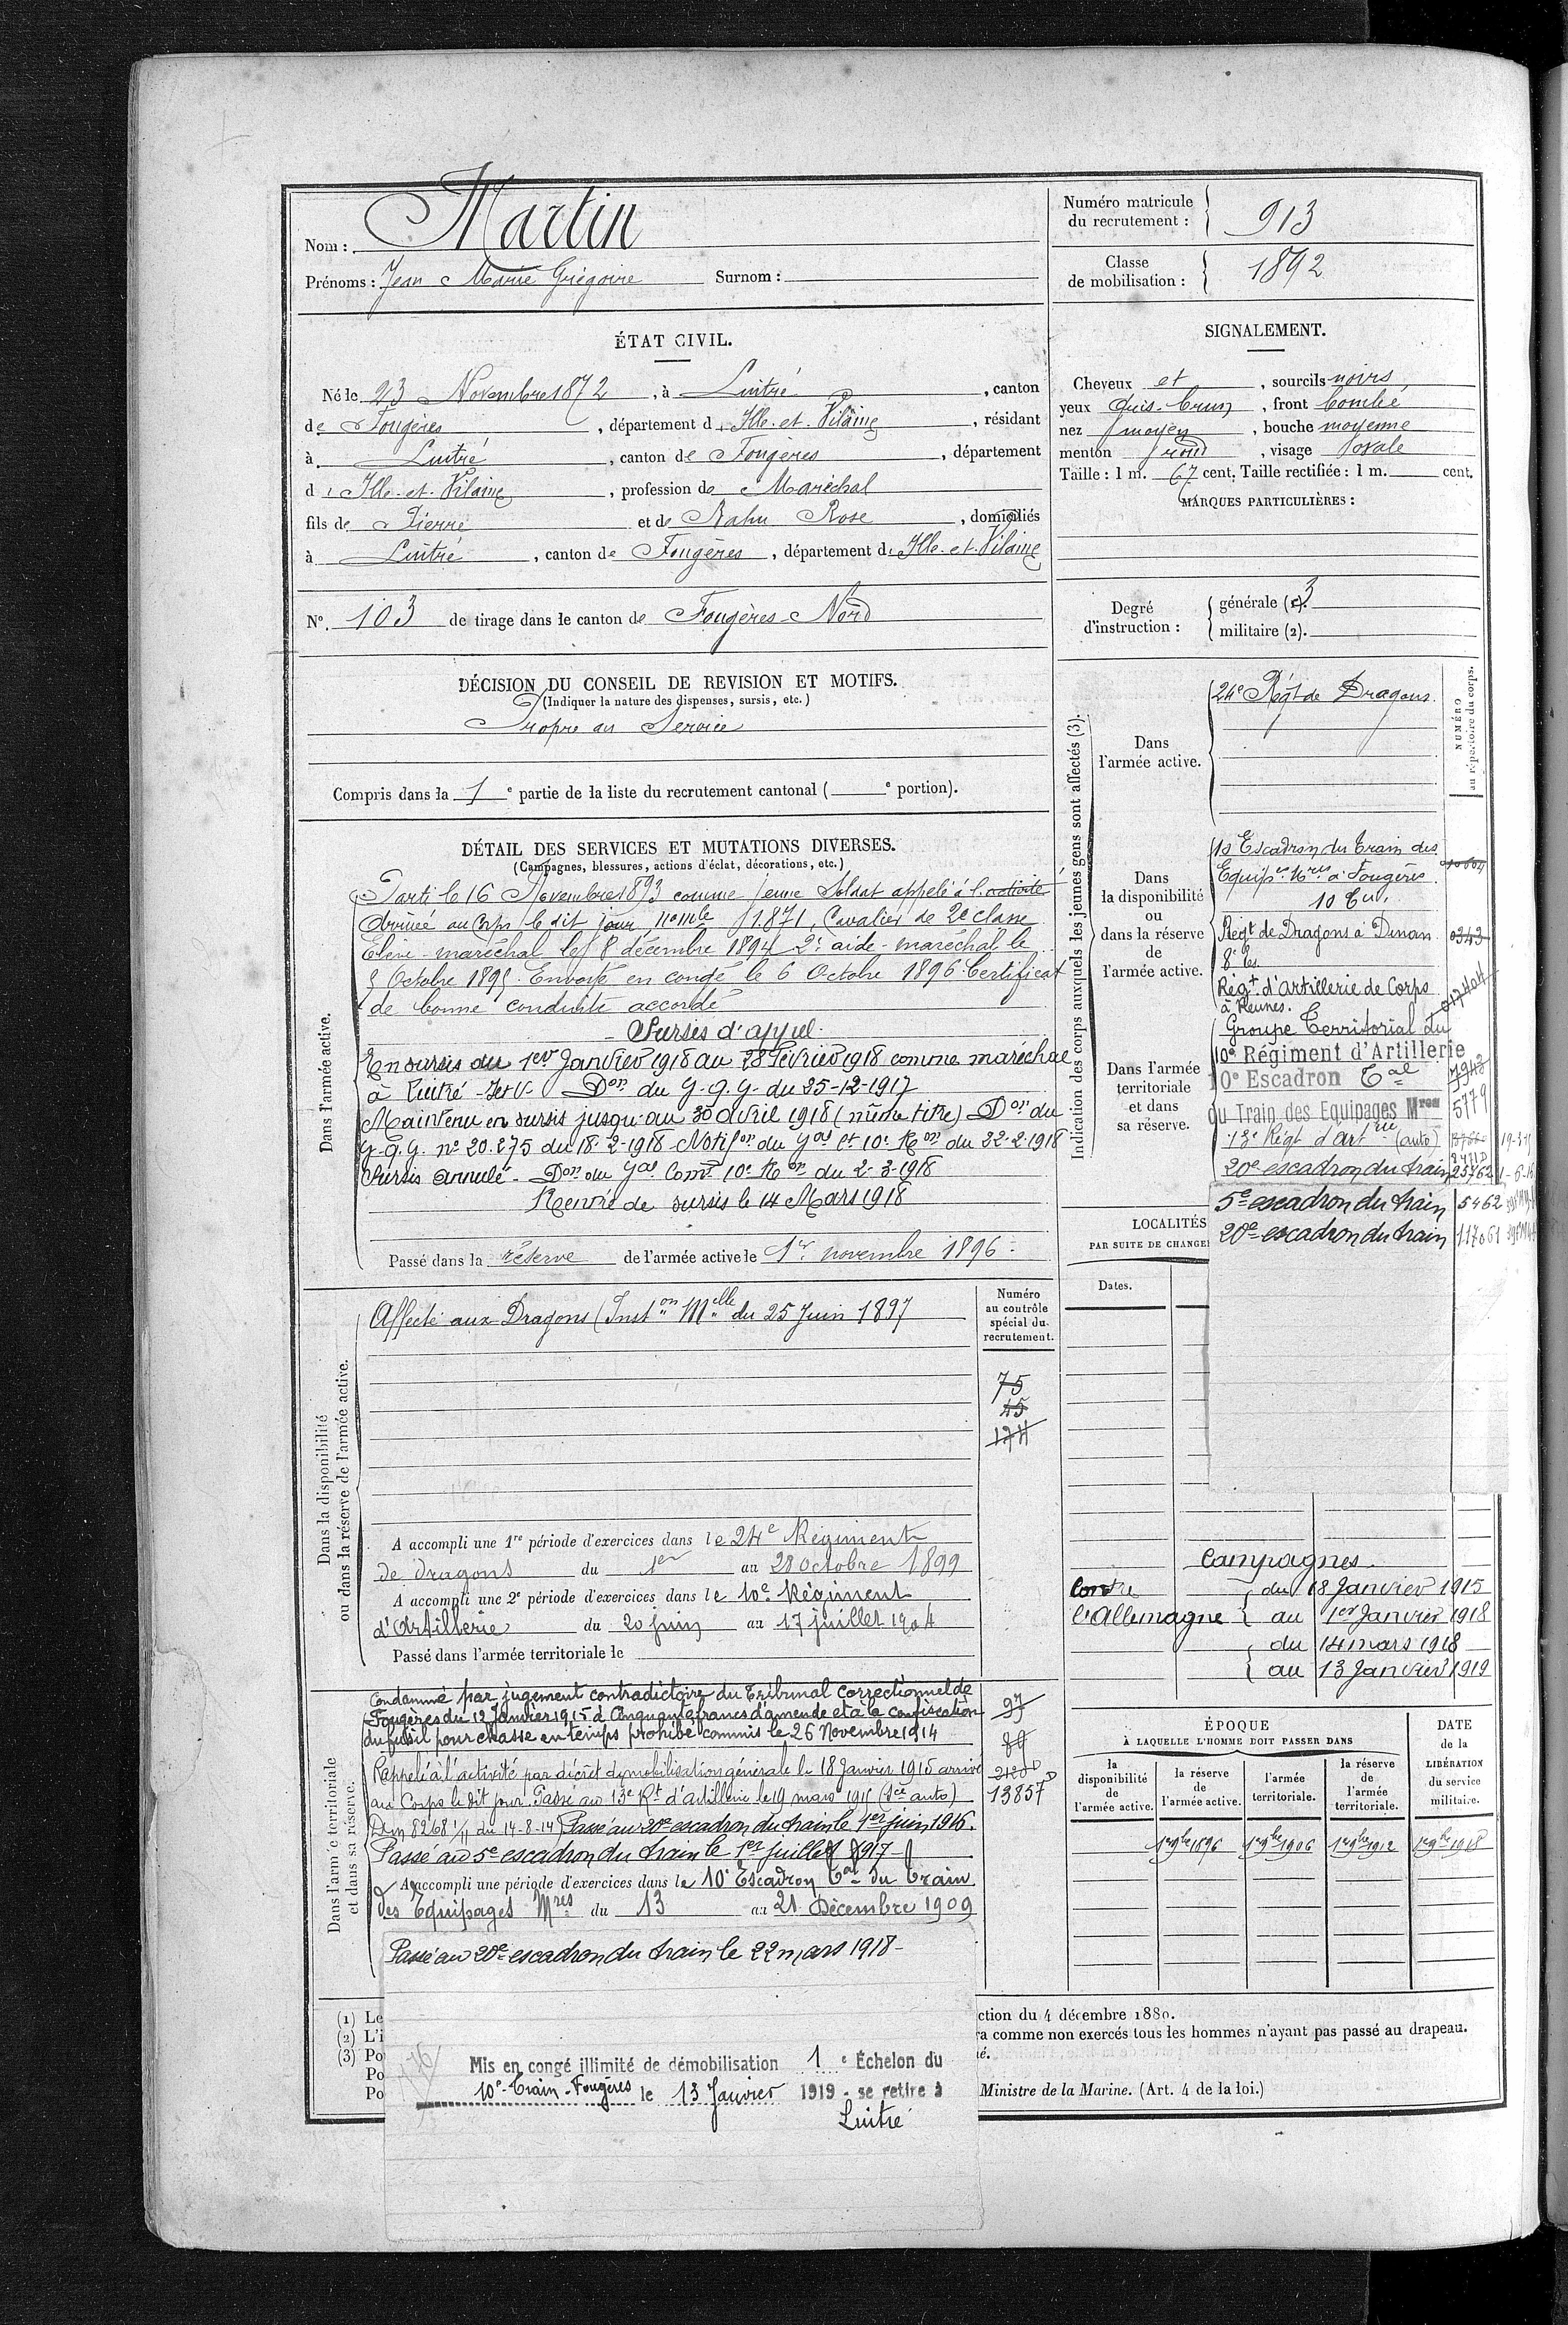 Nom : Martin
Prénoms : Jean Marie Grégoire Surnom :
Numéro matricule
du recrutement : 913
Classe
de mobilisation : 1892
ÉTAT CIVIL.
Né le 23 Novembre 1872, à Luitré, canton
de Fougères, département d'Ille-et-Vilaine, résidant
à Luitré, canton de Fougères, département
d'Ille-et-Vilaine, profession de Maréchal
fils de Pierre et de Rahu Rose, domiciliés
à Luitré, canton de Fougères, département d'Ille-et-Vilaine
N° 103 de tirage dans le canton de Fougères-Nord
SIGNALEMENT.
Cheveux et, sourcils noirs
yeux gris-brun, front bombé
nez moyen, bouche moyenne
menton rond, visage ovale
Taille : 1 m. 67 cent. Taille rectifiée : 1 m. cent.
MARQUES PARTICULIÈRES :
Degré
d'instruction :
générale (1). 3
militaire (2).
DÉCISION DU CONSEIL DE REVISION ET MOTIFS.
(Indiquer la nature des dispenses, sursis, etc.)
Propre au Service
Compris dans la 1e partie de la liste du recrutement cantonal ( e portion).
DÉTAIL DES SERVICES ET MUTATIONS DIVERSES.
(Campagnes, blessures, actions d'éclat, décorations, etc.)
Dans l'armée active.
Parti le 16 Novembre 1893 comme jeune Soldat appelé à l'activité
Arrivé au Corps le dit jour, n° mle 1.871, Cavalier de 2e classe
Elève-maréchal le 8 décembre 1894 2e aide-maréchal le
5 Octobre 1895. Envoyé en congé le 6 Octobre 1896. Certificat
de bonne conduite accordé
Sursis d'appel.
En sursis du 1er Janvier 1918 au 28 Février 1918 comme maréchal
à Luitré - Don du G.Q.G. du 25-12-1917
Maintenu en sursis jusqu'au 30 Avril 1918 (même titre) Don du
G.Q.G. n° 20.275 du 18-2-1918 Notifon du Gal Ct 10e Ron du 22-2-1918
Sursis annulé - Don du Gal Comt 10e Ron du 2-3-1918
Rentré de sursis le 14 Mars 1918
Passé dans la réserve de l'armée active le 1er novembre 1896.
Indication des corps auxquels les jeunes gens sont affectés (3).
NUMÉRO
au répertoire du corps.
Dans
l'armée active.
24e Régt de Dragons
Dans
la disponibilité
ou
dans la réserve
de
l'armée active.
10 Escadron du Train des
Equipes Mres à Fougères
Régt de Dragons à Dinan 0343
Régt d'Artillerie de Corps
à Rennes.
Dans l'armée
territoriale
et dans
sa réserve.
Groupe Territorial du
10e Régiment d'Artillerie
10e Escadron Tal 7943
du Train des Equipages Mres 5779
13e Régt d'Artrie (auto)
20e escadron du train 25762
5e escadron du train 5462
20e escadron du train 117061
LOCALITÉS
PAR SUITE DE CHANGE
Dates.
Dans la disponibilité
ou dans la réserve de l'armée active.
Affecté aux Dragons (Inston Melle du 25 Juin 1897
Numéro
au contrôle
spécial du
recrutement.
75
45
174
A accompli une 1re période d'exercices dans le 24e Régiment
de dragons du 1er au 28 octobre 1899
A accompli une 2e période d'exercices dans le 10e Régiment
d'Artillerie du 20 juin au 17 juillet 1904
Passé dans l'armée territoriale le
Campagnes
Contre
l'Allemagne
du 18 Janvier 1915
au 1er Janvier 1918
du 14 mars 1918
au 13 Janvier 1919
Dans l'armée territoriale
et dans sa réserve.
Condamné par jugement contradictoire du Tribunal correctionnel de
Fougères du 12 Janvier 1915 à Cinquante francs d'amende et à la confiscation
du fusil pour chasse en temps prohibé commis le 26 Novembre 1914
Rappelé à l'activité par décret de mobilisation générale le 18 Janvier 1915 arrivé
au Corps le dit jour. Passé au 13e Rt d'artillerie le 19 mars 1915 (Sce auto)
Dm 8268 1/11 du 14-8-14) Passé au 20e escadron du train le 1er juin 1916.
Passé au 5e escadron du train le 1er juillet 1917
A accompli une période d'exercices dans le 10e Escadron Tal du Train
des Equipages Mres du 13 au 21 Décembre 1909
Passé au 20e escadron du train le 22 mars 1918-
97
80
13857 D
ÉPOQUE
À LAQUELLE L'HOMME DOIT PASSER DANS
DATE
de la
LIBÉRATION
du service
militaire.
la
disponibilité
de
l'armée active.
la réserve
de
l'armée active.
l'armée
territoriale.
la réserve
de
l'armée
territoriale.
1er 9bre 1896 1er 9bre 1906 1er 9bre 1912 1er 9bre 1918
(1) Le
(2) L'i
(3) Po
Po
Po
ction du 4 décembre 1880.
ra comme non exercés tous les hommes n'ayant pas passé au drapeau.
né.
Ministre de la Marine. (Art. 4 de la loi.)
Mis en congé illimité de démobilisation 1e Échelon du
10e Train-Fougères le 13 Janvier 1919 - se retire à
Luitré